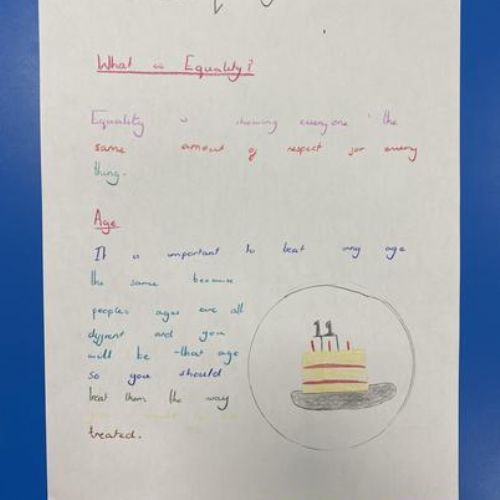 What is Equality?
Equality is showing everyone the
same amount of respect for every
thing.
Age
It is important to treat any age
the same because
peoples ages are all
diffrent and you
will be that age
so you should
treat them the way
treated.
11